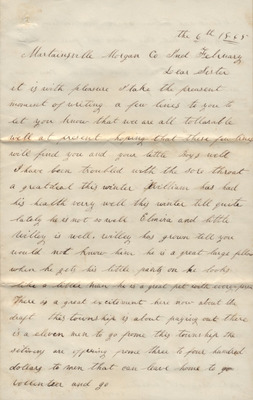 the 6th 1865
Martainsville Morgan Co Ind February
Dear Sister
it is with pleasure I take the present
moment of writing a few lines to you to
let you know that we are all tollarble
well at present hoping that these few lines
will find you and your little boys well
I have been troubled with the sore throat
a great deal this winter William has had
his health very well this winter till quite
lately he is not so well Elmira and little
Willey is well, willey has grown till you
would not know him he is a great large fellow
when he gets his little pants on he looks
like a little man he is a great pet with
There is a great excitement here now about the
draft this township is about paying out there
is a eleven men to go frome this township the
citizens are offering frome three to four hundred
dollars to men that can leave home to go
vollunteer and go